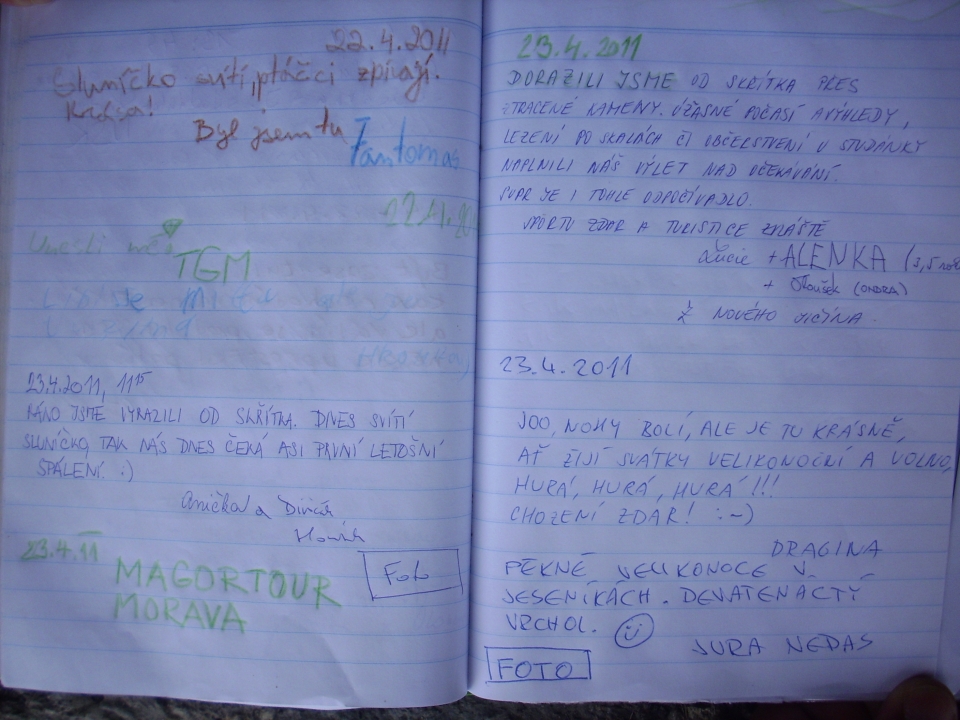 22.4.2011
Sluníčko svítí, ptáčci zpívají.
Krása!
Byl jsem tu Fantomas
Unesli mě
TGM
23.4.2011, 11¹⁵
RÁNO JSME VYRAZILI OD SKŘÍTKA. DNES SVÍTÍ
SLUNÍČKO, TAK NÁS DNES ČEKÁ ASI PRVNÍ LETOŠNÍ
SPÁLENÍ :)
Anička a
23.4.11
MAGORTOUR
MORAVA
Foto
23.4.2011
DORAZILI JSME OD SKŘÍTKA PŘES
ZTRACENÉ KAMENY. ÚŽASNÉ POČASÍ A VÝHLEDY,
LEZENÍ PO SKALÁCH ČI OBČERSTVENÍ U STUDÁNKY
NAPLNILI NÁŠ VÝLET NAD OČEKÁVÁNÍ.
SUPR JE I TOHLE ODPOČÍVADLO.
SPORTU ZDAR A TURISTICE ZVLÁŠTĚ
Lucie + ALENKA (3,5
+ (ONDRA)
Z NOVÉHO JIČÍNA.
23.4.2011
JOO, NOHY BOLÍ, ALE JE TU KRÁSNĚ,
AŤ ŽIJÍ SVÁTKY VELIKONOČNÍ A VOLNO,
HURÁ, HURÁ, HURÁ!!!
CHOZENÍ ZDAR! :-)
DRAGINA
PĚKNÉ VELIKONOCE V
JESENÍKÁCH. DEVATENÁCTÝ
VRCHOL.
JURA NEDAS
FOTO